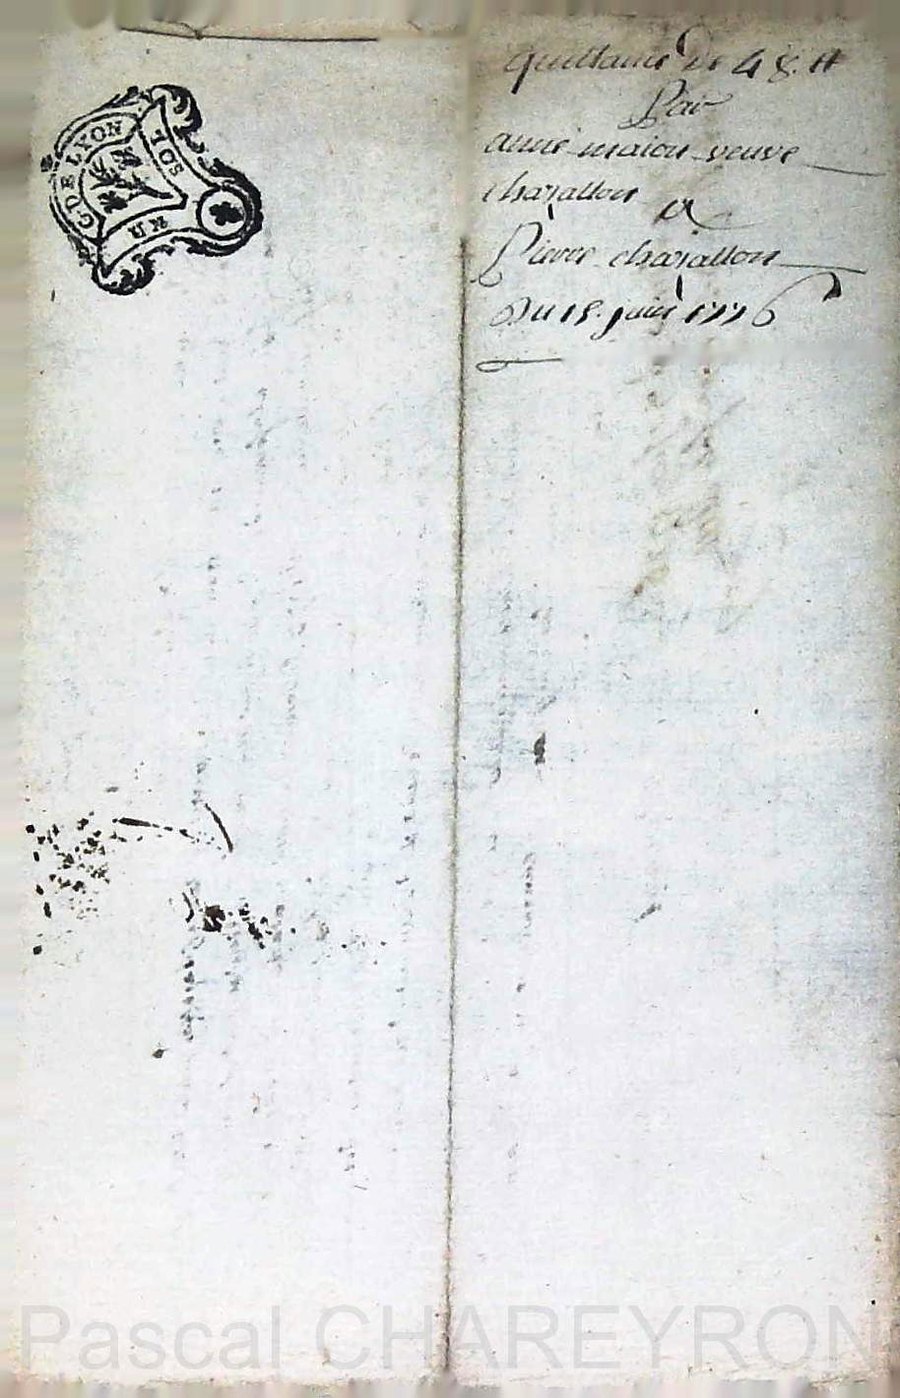 G. DE LYON
UN SOL
quittance de 48.₶
Par
anne maion veuve
charallon
a
Pierre charallon
Du 15. juin 1776
Pascal CHAREYRON